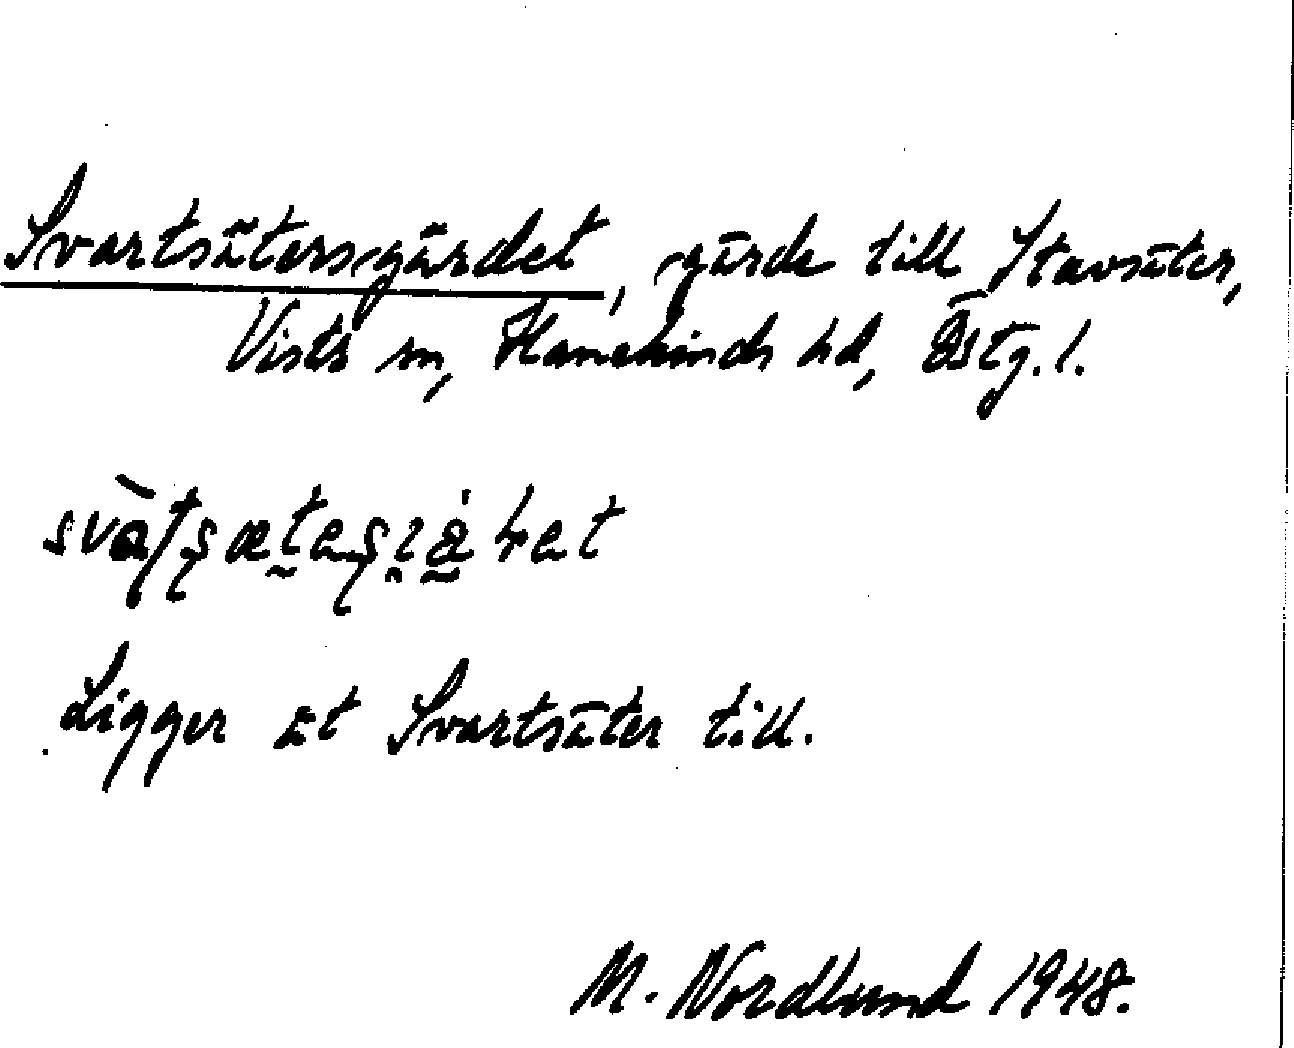 Svartsätersgärdet, gärde till Stavsäter,
Vists sn, Hanekinds hd, Östg. l.
Ligger åt Svartsäter till.
M. Nordlund 1948.